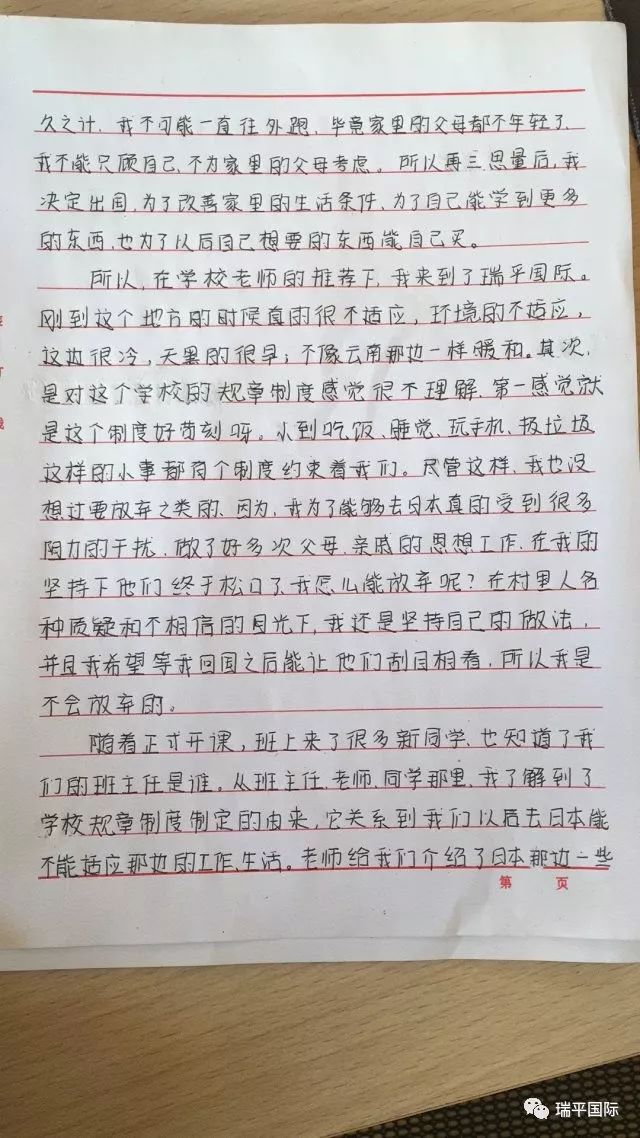 久之计，我不可能一直往外跑，毕竟家里的父母都不年轻了，
我不能只顾自己，不为家里的父母考虑。所以再三思量后，我
决定出国，为了改善家里的生活条件、为了自己能学到更多
的东西，也为了以后自己想要的东西能自己买。
所以，在学校老师的推荐下，我来到了瑞平国际。
刚到这个地方的时候真的很不适应，环境的不适应，
这边很冷，天黑的很早；不像云南那边一样暖和。其次，
是对这个学校的规章制度感觉很不理解、第一感觉就
是这个制度好苛刻呀。小到吃饭、睡觉、玩手机、扔垃圾
这样的小事都有个制度约束着我们。尽管这样、我也没
想过要放弃之类的、因为，我为了能够去日本真的受到很多
阻力的干扰，做了好多次父母、亲戚的思想工作、在我的
坚持下他们终于松口了，我怎么能放弃呢？在村里人各
种质疑和不相信的目光下，我还是坚持自己的做法，
并且我希望等我回国之后能让他们刮目相看，所以我是
不会放弃的。
随着正式开课，班上来了很多新同学、也知道了我
们的班主任是谁。从班主任、老师、同学那里、我了解到了
学校规章制度制定的由来，它关系到我们以后去日本能
不能适应那边的工作、生活。老师给我们介绍了日本那边一些
第 页
瑞平国际